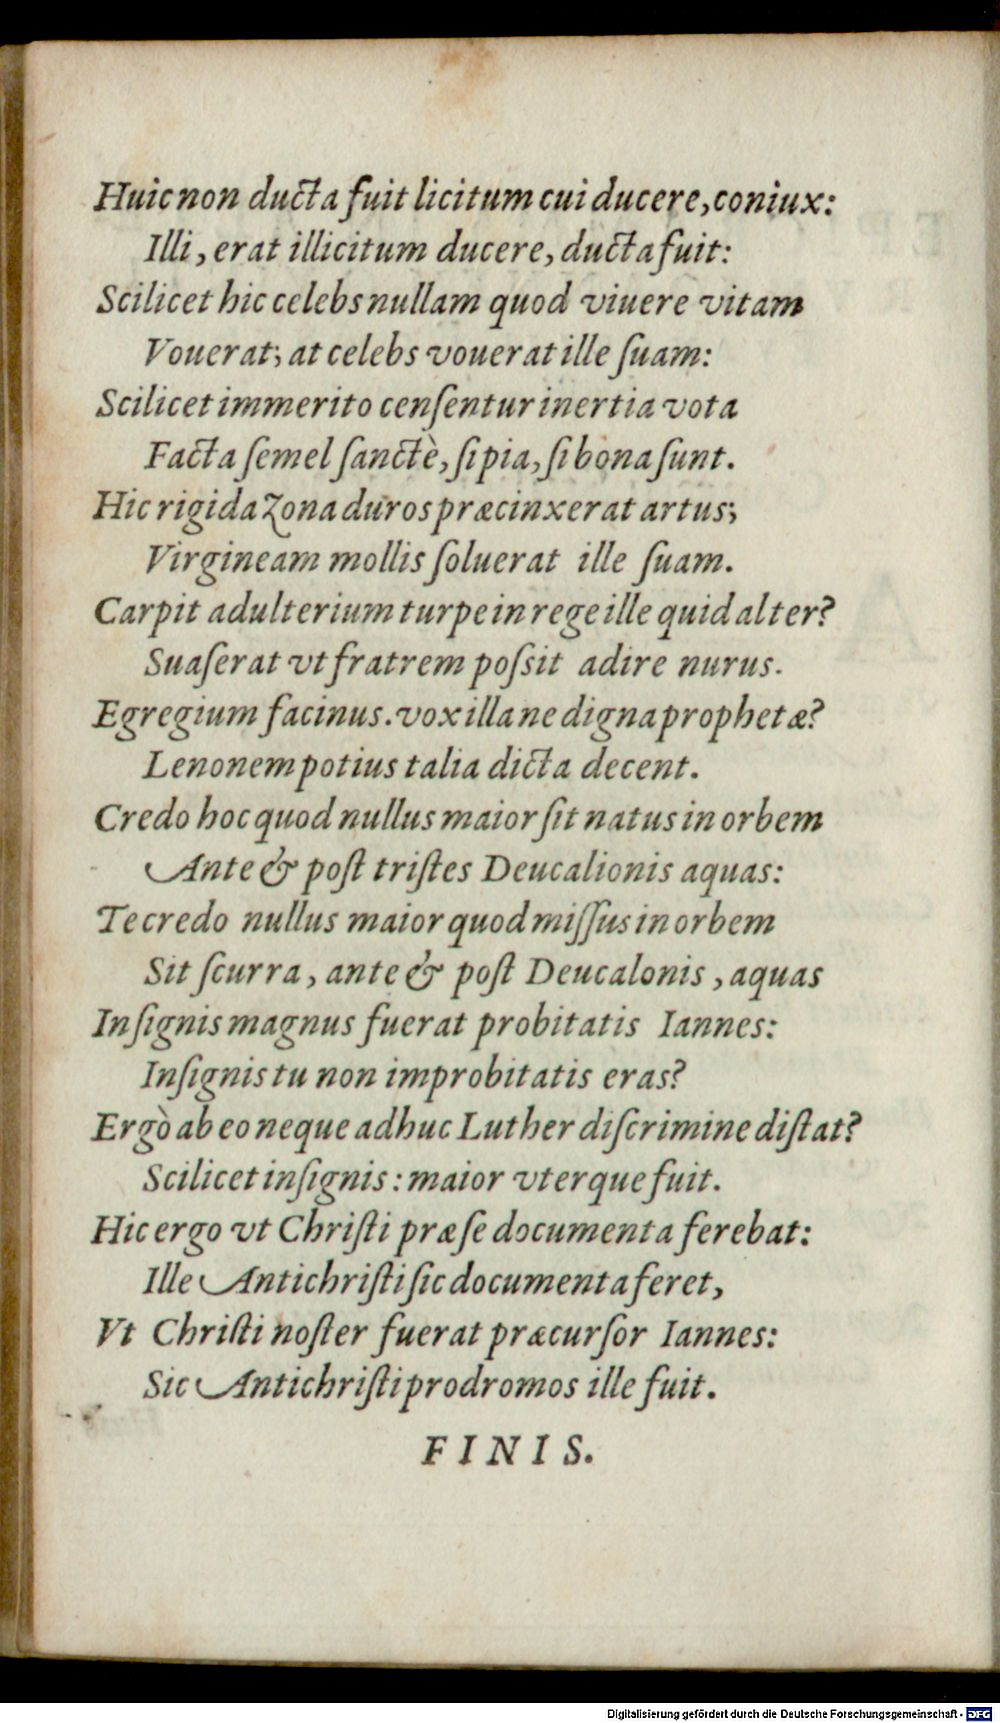 Huic non ducta fuit licitum cui ducere, coniux:
Illi, erat illicitum ducere, ducta fuit:
Scilicet hic celebs nullam quod viuere vitam
Vouerat; at celebs vouerat ille ſuam:
Scilicet immerito cenſentur inertia vota
Facta ſemel ſanctè, ſi pia, ſi bona ſunt.
Hic rigida zona duros præcinxerat artus;
Virgineam mollis ſoluerat ille ſuam.
Carpit adulterium turpe in rege ille quid alter?
Suaſerat vt fratrem poſsit adire nurus.
Egregium facinus. vox illane digna prophetæ?
Lenonem potius talia dicta decent.
Credo hoc quod nullus maior ſit natus in orbem
Ante & poſt triſtes Deucalionis aquas:
Te credo nullus maior quod miſſus in orbem
Sit ſcurra, ante & poſt Deucalonis, aquas
Inſignis magnus fuerat probitatis Iannes:
Inſignis tu non improbitatis eras?
Ergò ab eo neque adhuc Luther diſcrimine diſtat?
Scilicet inſignis: maior vterque fuit.
Hic ergo vt Chriſti præ ſe documenta ferebat:
Ille Antichriſti ſic documenta feret,
Vt Chriſti noſter fuerat præcurſor Iannes:
Sic Antichriſti prodromos ille fuit.
FINIS.
Digitalisierung gefördert durch die Deutsche Forschungsgemeinschaft - DFG